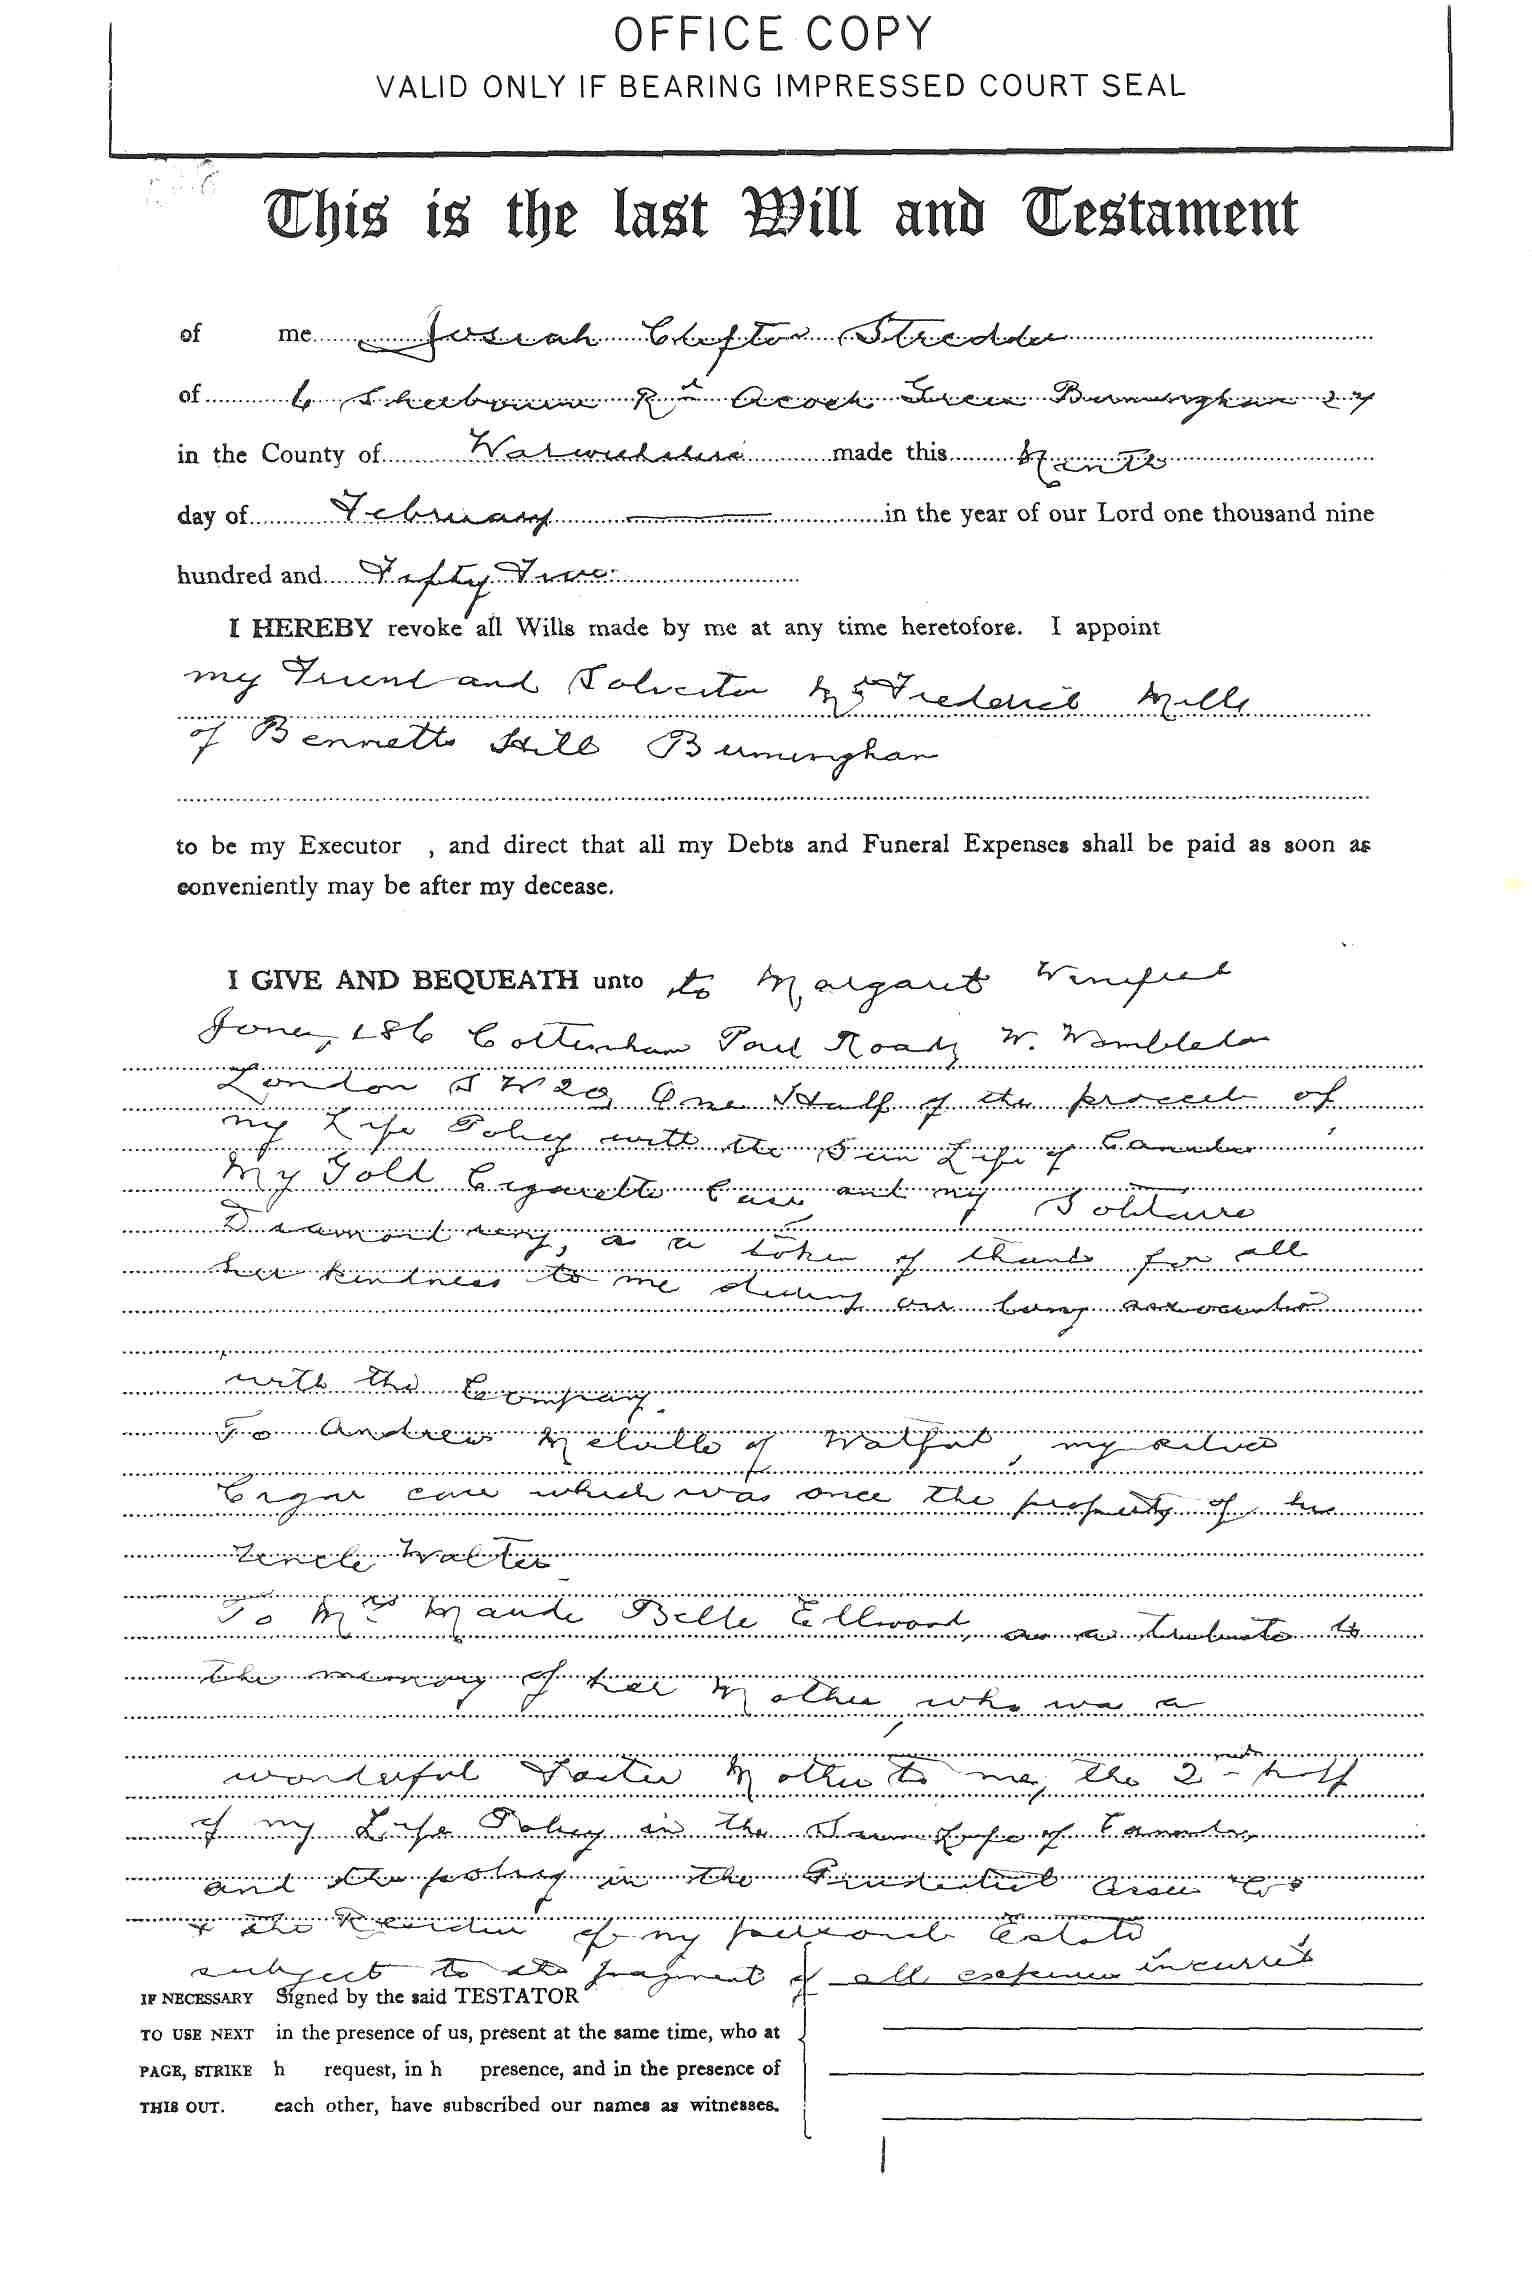 OFFICE COPY
VALID ONLY IF BEARING IMPRESSED COURT SEAL
This is the last Will and Testament
of me Josiah Clifton Stredder
of 6 Sherbourne Rd Acock Green Birmingham 27
in the County of Warwickshire made this Ninth
day of February in the year of our Lord one thousand nine
hundred and Fifty Two
I HEREBY revoke all Wills made by me at any time heretofore. I appoint
my Friend and Solicitor Mr Frederick Mills
of Bennetts Hill Birmingham
to be my Executor , and direct that all my Debts and Funeral Expenses shall be paid as soon as
conveniently may be after my decease.
I GIVE AND BEQUEATH unto to Margaret Winifred
Jones, 186 Cottenham Park Road, W. Wimbledon
London S W 20, One Half of the proceeds of
my Life Policy with the Sun Life of Canada,
My Gold Cigarette Case and my Solitaire
Diamond ring, as a token of thanks for all
her kindness to me during our long association
with the Company.
To Andrew Melville of Watford, my silver
Cigar case which was once the property of his
Uncle Walter
To Mrs Maude Belle Ellwood, as a tribute to
the memory of her Mother, who was a
wonderful Foster Mother to me, the 2nd half
of my Life Policy in the Sun Life of Canada,
and the policy in the Prudential Assce Co
& the Residue of my personal Estate
subject to the payment of all expenses incurred
IF NECESSARY Signed by the said TESTATOR
TO USE NEXT in the presence of us, present at the same time, who at
PAGE, STRIKE h request, in h presence, and in the presence of
THIS OUT. each other, have subscribed our names as witnesses.